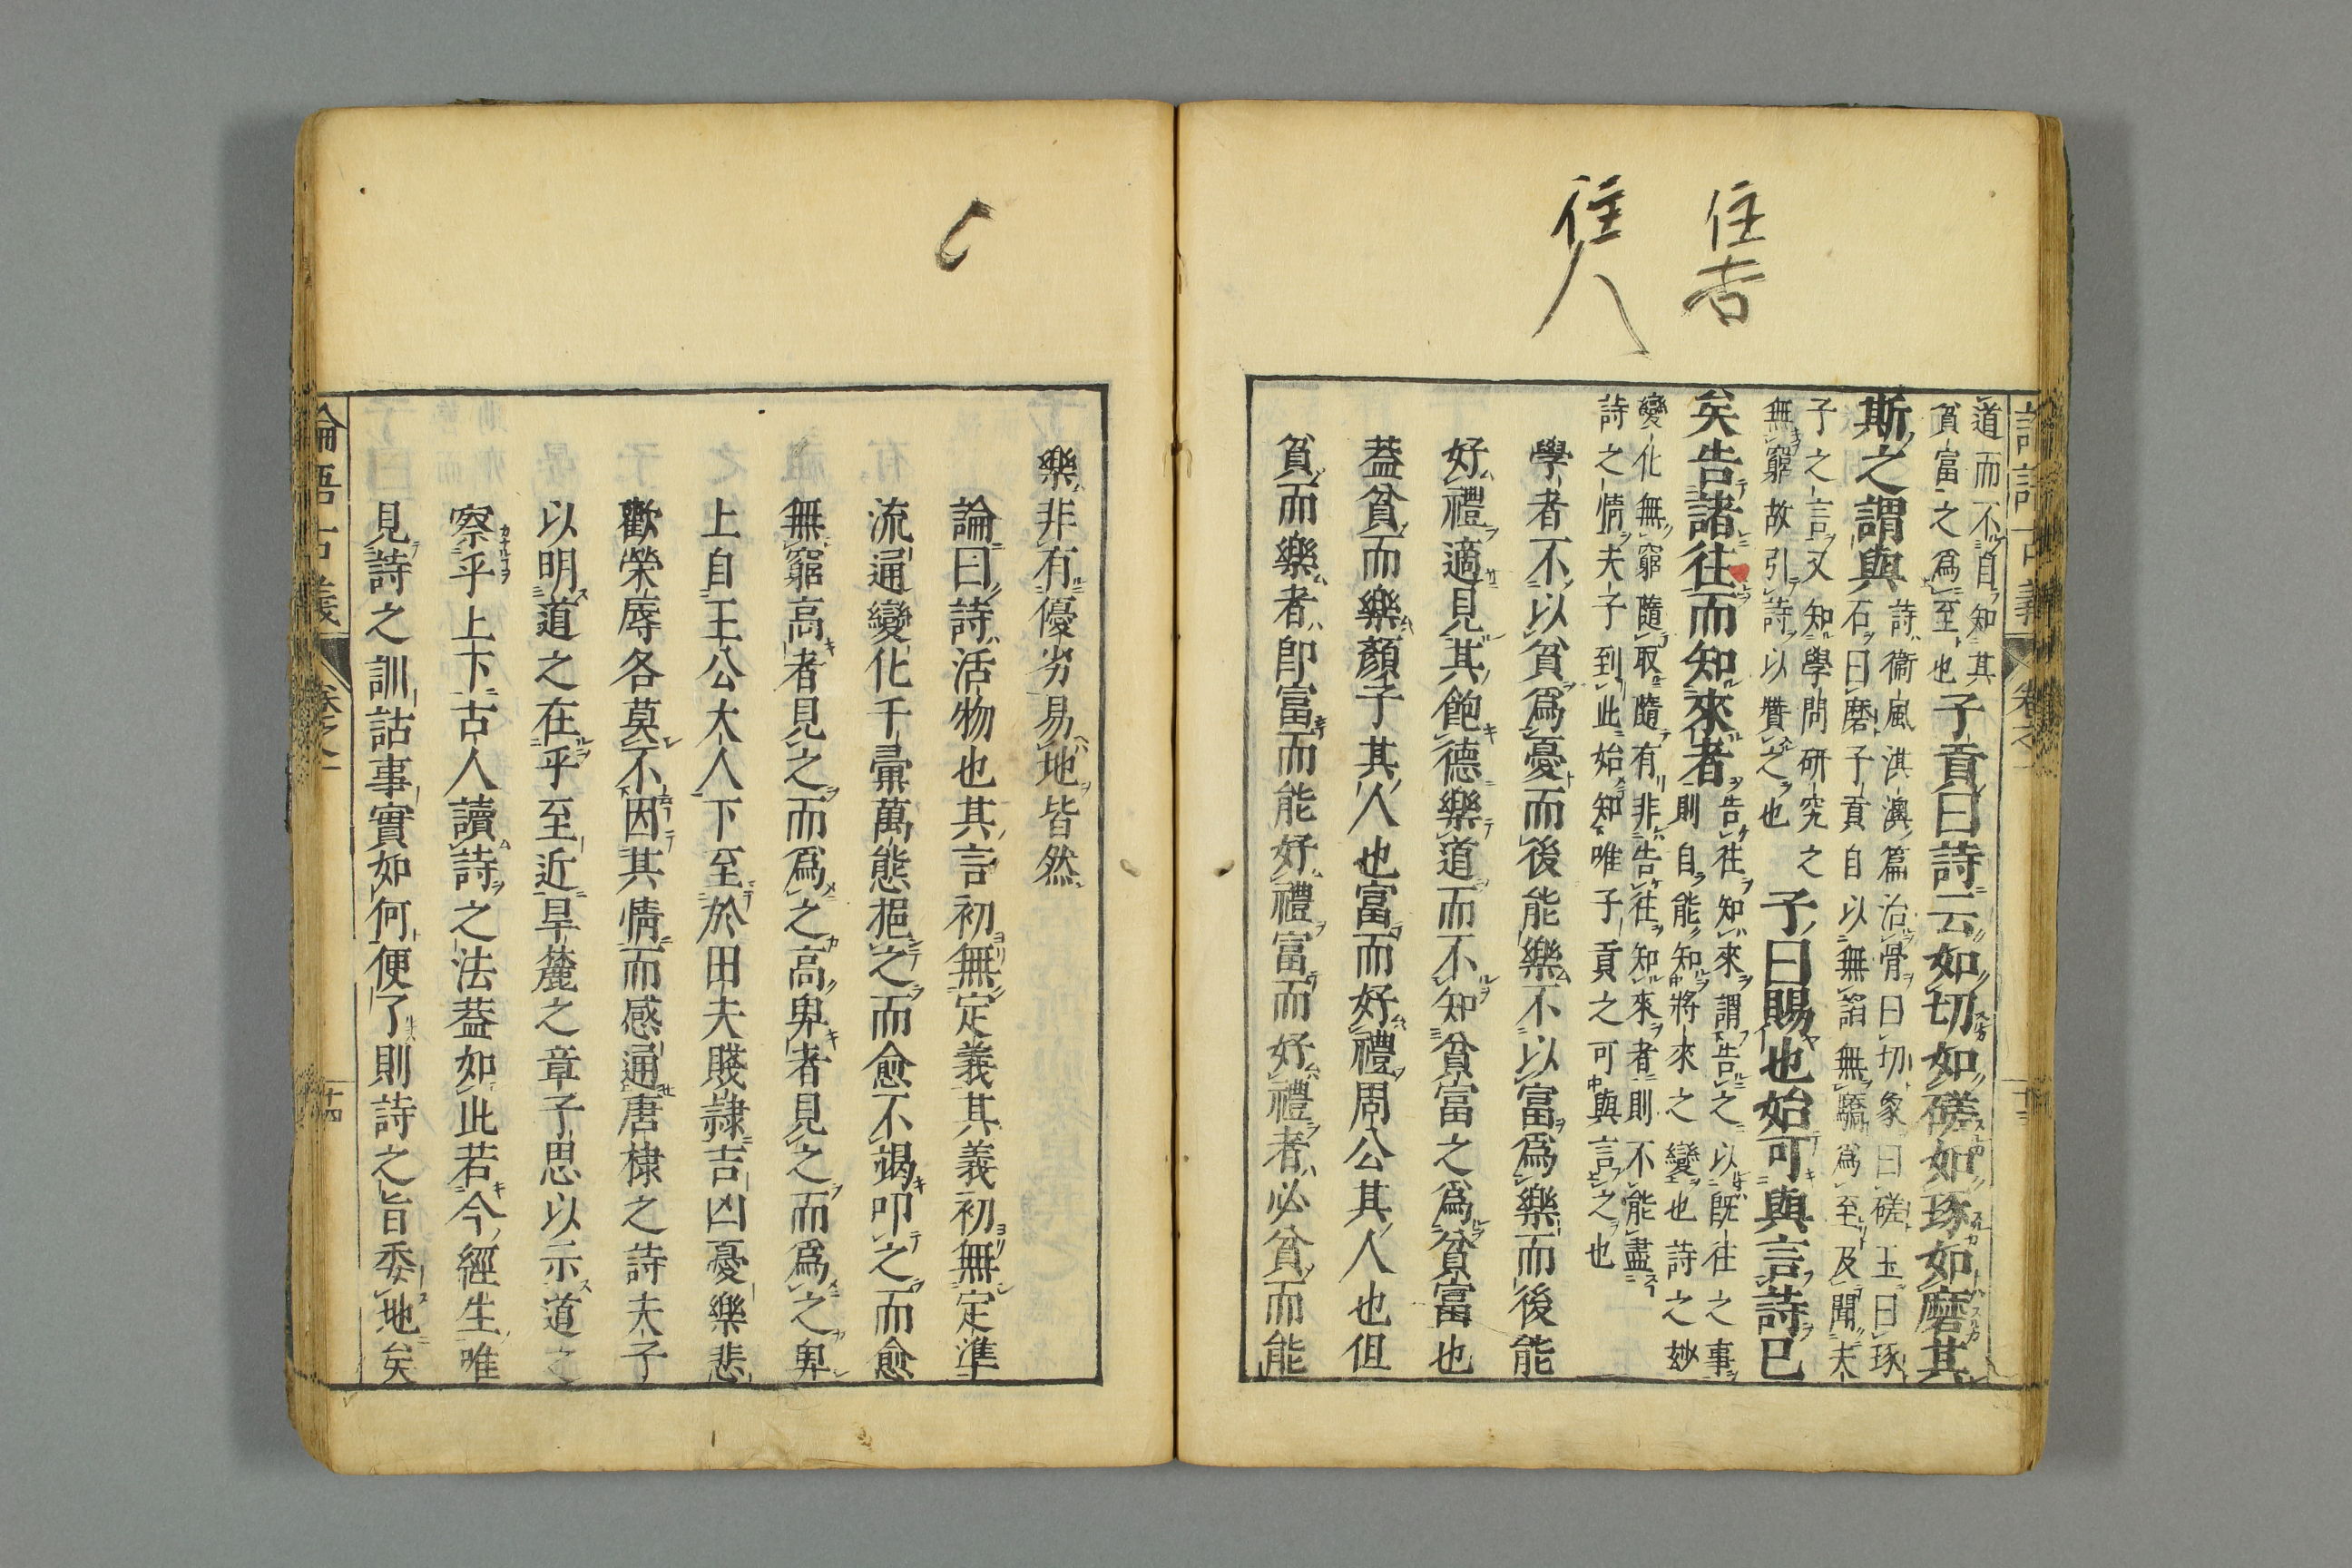 住吉
住人
道而不自知其
貧富之爲至也
子貢曰詩云如切如磋如琢如磨其
斯之謂與
詩衞風淇澳篇治骨曰切象曰磋玉曰琢
石曰磨子貢自以無諂無驕爲至及聞夫
子之言又知學問研究之
無窮故引詩以贊之也
子曰賜也始可與言詩已
矣告諸往而知來者
告往知來謂告之以既往之事
則自能知將來之變也詩之妙
變化無窮隨取隨有非告往知來者則不能盡
詩之情夫子到此始知唯子貢之可與言之也
學者不以貧爲憂而後能樂不以富爲樂而後能
好禮適見其飽德樂道而不知貧富之爲貧富也
蓋貧而樂顏子其人也富而好禮周公其人也但
貧而樂者卽富而能好禮富而好禮者必貧而能
樂非有優劣易地皆然
論曰詩活物也其言初無定義其義初無定準
流通變化千彙萬態挹之而愈不竭叩之而愈
無窮高者見之而爲之高卑者見之而爲之卑
上自王公大人下至於田夫賤隷吉凶憂樂悲
歡榮辱各莫不因其情而感通唐棣之詩夫子
以明道之在乎至近旱麓之章子思以示道之
察乎上下古人讀詩之法蓋如此若今經生唯
見詩之訓詁事實如何便了則詩之旨委地矣
論語古義
卷之一
十四